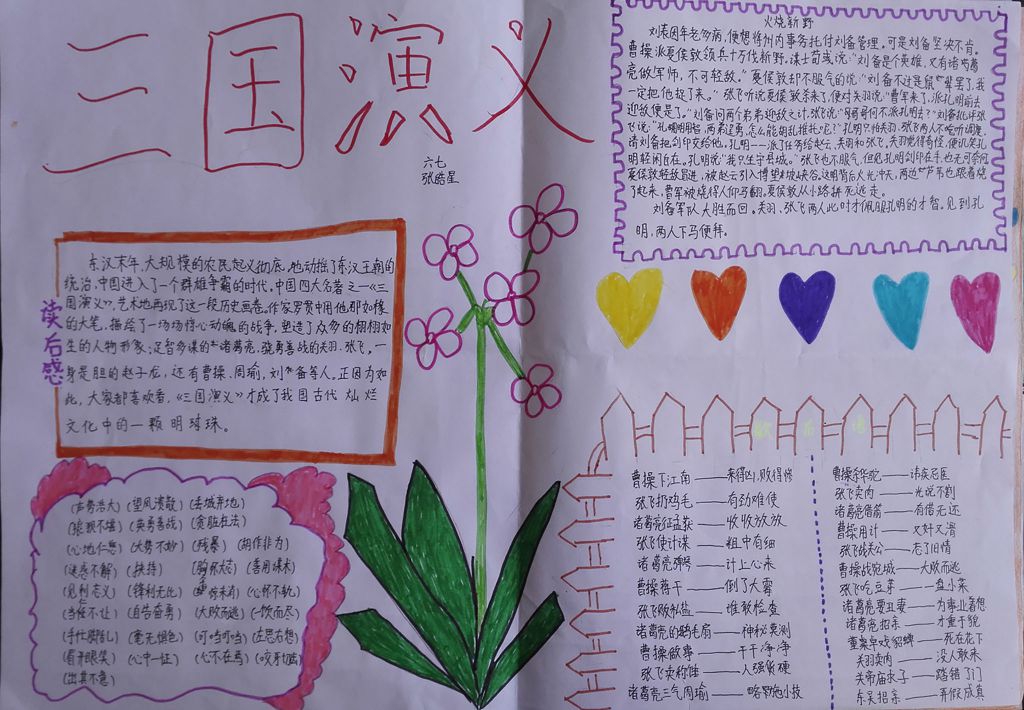 三国演义
六七
张皓星
火烧新野
刘表因年老多病,便想将州内事务托付刘备管理。可是刘备坚决不肯。
曹操派夏侯敦领兵十万伐新野,谋士荀彧说:"刘备是个英雄,又有诸葛
亮做军师,不可轻敌。"夏侯敦却不服气的说:"刘备不过是鼠辈罢了,我
一定把他捉了来。"张飞听说夏侯敦杀来了,便对关羽说:"曹军来了,派孔明前去
迎敌便是了。"刘备问两个弟弟迎敌之计,张飞说:"哥哥何不派孔明去?"刘备批评张
飞说:"孔明用智,两弟逞勇,怎么能胡乱推托呢?"孔明只怕关羽、张飞两人不肯听调度,
请刘备把剑印交给他,孔明一一派了任务给赵云、关羽和张飞,关羽觉得奇怪,便讥笑孔
明轻闲自在。孔明说:"我只坐守县城。"张飞也不服气,但见孔明剑印在手,也无可奈何
夏侯敦轻敌冒进,被赵云引入博望坡峡谷。这时背后火光冲天,两边芦苇也跟着烧
了起来,曹军被烧得人仰马翻。夏侯敦从小路拼死逃走。
刘备军队大胜而回。关羽、张飞两人此时才佩服孔明的才智。见到孔
明,两人下马便拜。
读后感
东汉末年,大规模的农民起义彻底地动摇了东汉王朝的
统治,中国进入了一个群雄争霸的时代,中国四大名著之一《三
国演义》,艺术地再现了这一段历史画卷。作家罗贯中用他那如椽
的大笔,描绘了一场场惊心动魄的战争,塑造了众多的栩栩如
生的人物形象:足智多谋的诸葛亮,骁勇善战的关羽、张飞,一
身是胆的赵子龙,还有曹操、周瑜,刘备等人。正因为如
此,大家都喜欢看,《三国演义》才成了我国古代灿烂
文化中的一颗明珠。
(声势浩大)(望风溃散)(弃城弃地)
(狼狈不堪)(英勇善战)(贪脏枉法)
(心地仁慈)(大势不妙)(残暴)(胡作非为)
(迷惑不解)(挟持)(胸怀)(善用谋术)
(见利忘义)(锋利无比)(心怀不轨)
(当仁不让)(自告奋勇)(大败而逃)(一饮而尽)
(手忙脚乱)(毫无惧色)(叮当叮当)(左思右想)
(眉开眼笑)(心中一怔)(心不在焉)(咬牙切齿)
(出其不意)
歇后语
曹操下江南——来得凶,败得惨
张飞扔鸡毛——有劲难使
诸葛亮征孟获——收收放放
张飞使计谋——粗中有细
诸葛亮弹琴——计上心来
曹操蒋干——倒了大霉
张飞贩私盐——谁敢检查
诸葛亮的鹅毛扇——神秘莫测
曹操做事——干干净净
张飞卖秤锤——人强货硬
诸葛亮三气周瑜——略施小技
曹操杀华佗——讳疾忌医
张飞卖肉——光说不割
诸葛亮借箭——有借无还
曹操用计——又奸又滑
张飞战关公——忘了旧情
曹操战宛城——大败而逃
张飞吃豆芽——一盘小菜
诸葛亮娶丑妻——为事业着想
诸葛亮招亲——才重于貌
董卓卓戏貂蝉——死在花下
关羽卖肉——没人敢来
关帝庙求子——踏错了门
东吴招亲——弄假成真